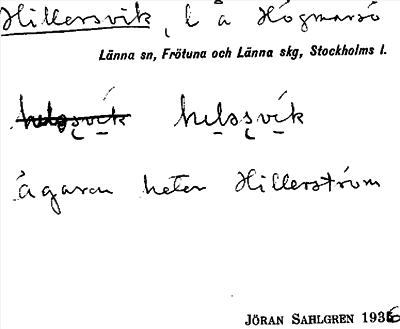 Hillersvik, l å Högmarsö
Länna sn, Frötuna och Länna skg, Stockholms l.
helsşvi̱k
ägaren heter Hillerström
JÖRAN SAHLGREN 1936